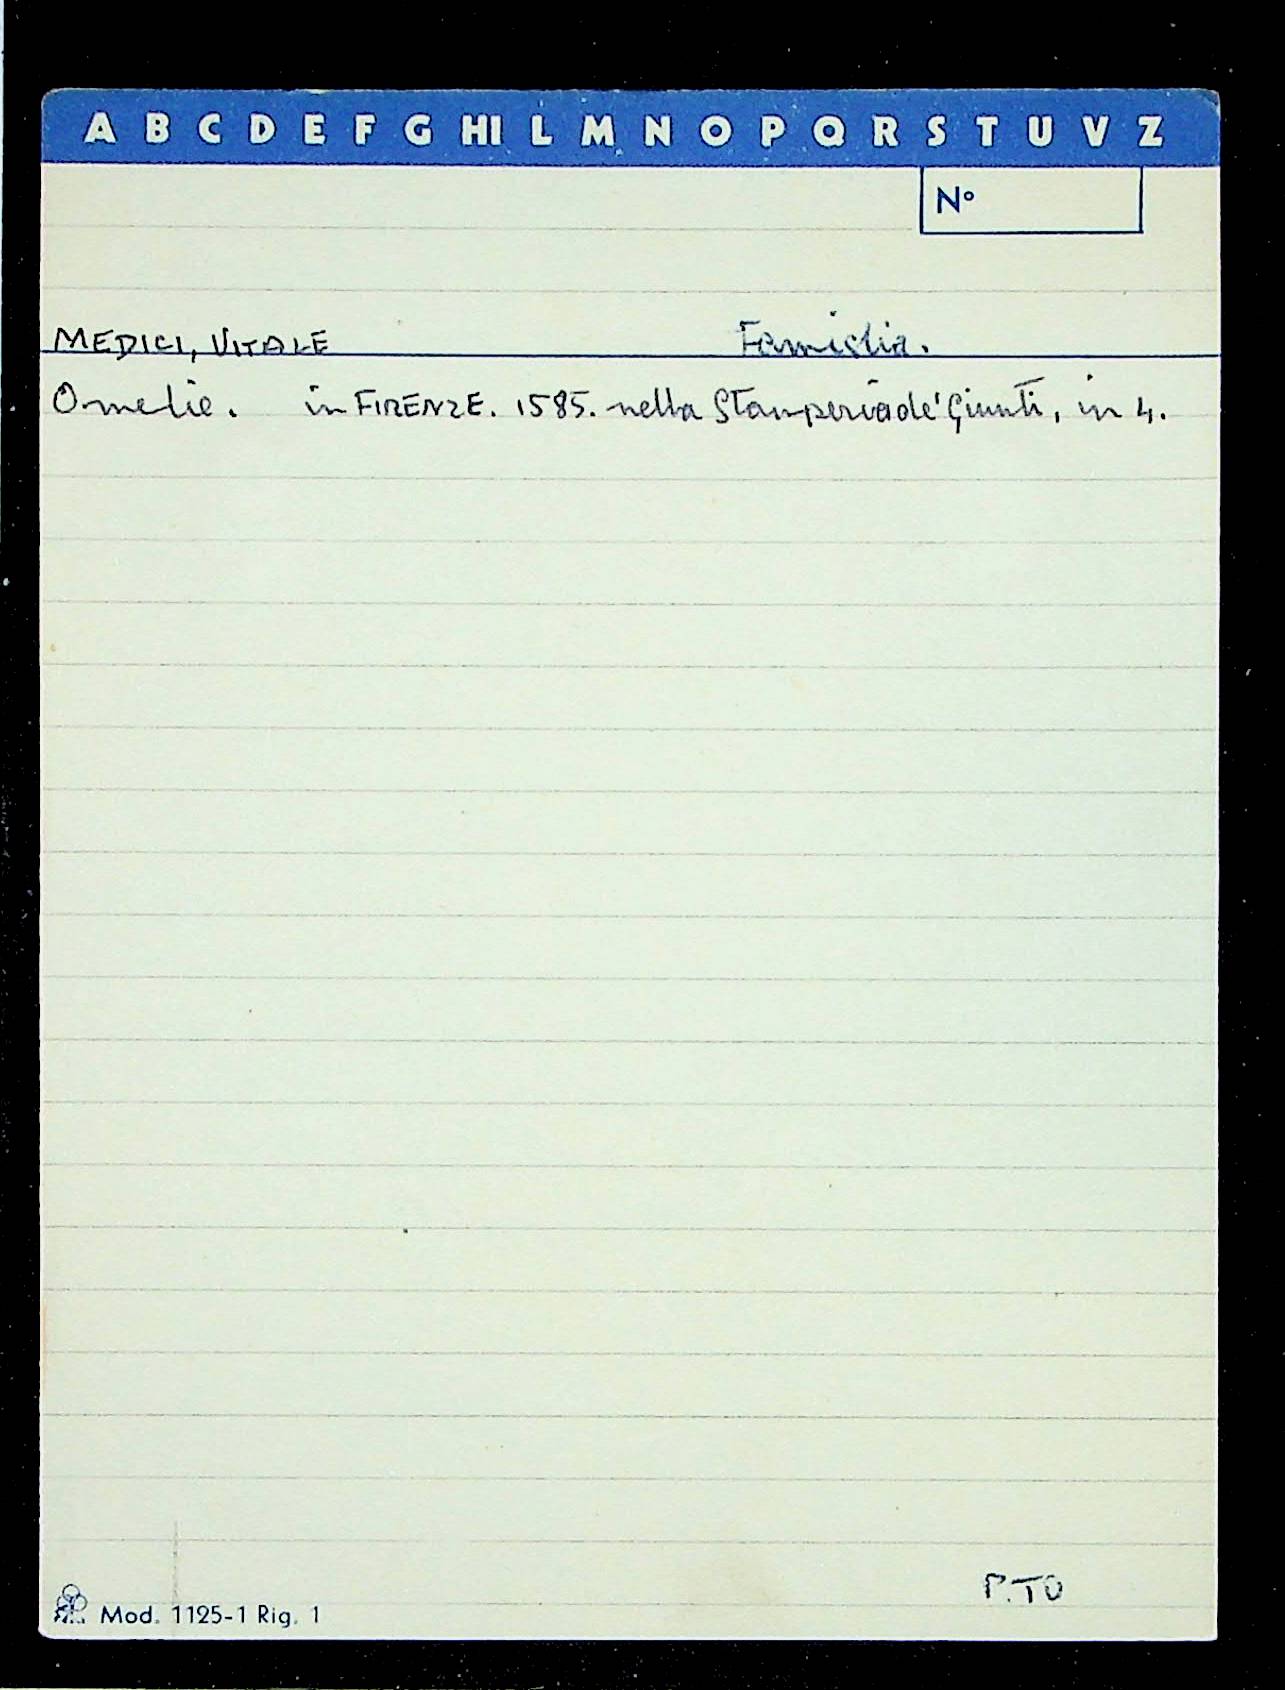 A B C D E F G HI L M N O P Q R S T U V Z
N°
MEDICI, VITALE Famiglia.
Omelie. in FIRENZE. 1585. nella Stamperia de' Giunti, in 4.
P.TO
Mod. 1125-1 Rig. 1